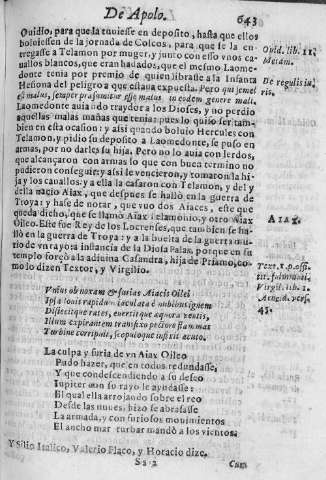 De Apolo.
643
Ouidio, para que la tuuiesse en deposito, hasta que ellos
boluiessen de la jornada de Colcos, para que se la en-
tregasse a Telamon por muger, y junto con esso vnos ca-
uallos blancos, que eran hadados, que el mesmo Laome-
donte tenia por premio de quien librasse a la Infanta
Hesiona del peligro a que estaua expuesta. Pero qui semel
est malus, semper præsumitur esse malus in eodem genere mali.
Laomedonte auia sido traydor a los Dioses, y no perdio
aquellas malas mañas que tenia: pues lo quiso ser tam-
bien en esta ocasion: y assi quando boluio Hercules con
Telamon, y pidio su deposito a Laomedonte, se puso en
armas, por no darles su hija. Pero no lo auia con lerdos,
que alcançaron con armas lo que con buen termino no
pudieron conseguir; y assi le vencieron, y tomaron la hi-
ja y los cauallos: y a ella la casaron con Telamon, y del y
della nacio Aiax, que despues se hallò en la guerra de
Troya: y hase de notar, que vuo dos Aiaces, este que
queda dicho, que se llamò Aiax Telamonio, y otro Aiax
Oileo. Este fue Rey de los Locrenses, que tambien se ha-
llò en la guerra de Troya: y a la buelta de la guerra mu-
rio de vn rayo a instancia de la Diosa Palas, porque en su
templo forçò a la adiuina Casandra, hija de Priamo, co-
mo lo dizen Textor, y Virgilio.
Ouid. lib. 11.
Metam.
De regulis iu-
ris.
Aiax.
Text. 2. p. offi.
tit. fulminati.
Virgil. lib. 1.
Aeneid. vers.
45.
Vnius ob noxam & furias Aiacis Oilei
Ipsa Iouis rapidum iaculata è nubibus ignem
Disiecitque rates, euertitque æquora ventis,
Illum expirantem transfixo pectore flammas
Turbine corripuit, scopuloque infixit acuto.
La culpa y furia de vn Aiax Oileo
Pudo hazer, que en todos redundasse,
Y que condescendiendo a su deseo
Iupiter aun su rayo le ayudasse:
El qual ella arrojando sobre el reo
Desde las nuues, hizo se abrasasse
La armada, y con furiosos mouimientos
El ancho mar turbar mandò a los vientos.
Y Silio Italico, Valerio Flaco, y Horacio dize.
Ss 2
Cum